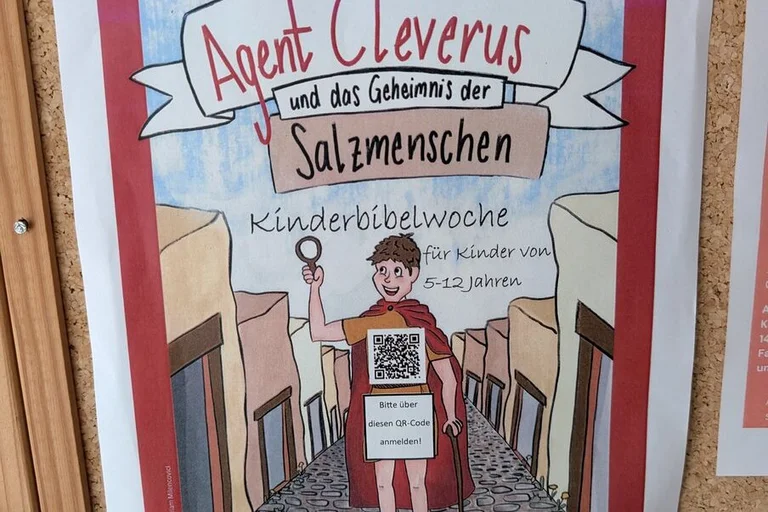 Agent Cleverus
und das Geheimnis der
Salzmenschen
Kinderbibelwoche
für Kinder von
5-12 Jahren
Bitte über
diesen QR-Code
anmelden!